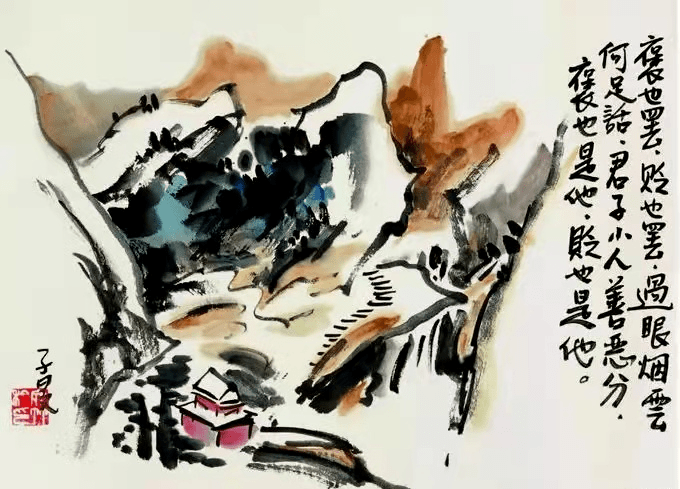 褒也罢、贬也罢，過眼烟雲
何足話、君子小人善恶分，
褒也是他、貶也是他。